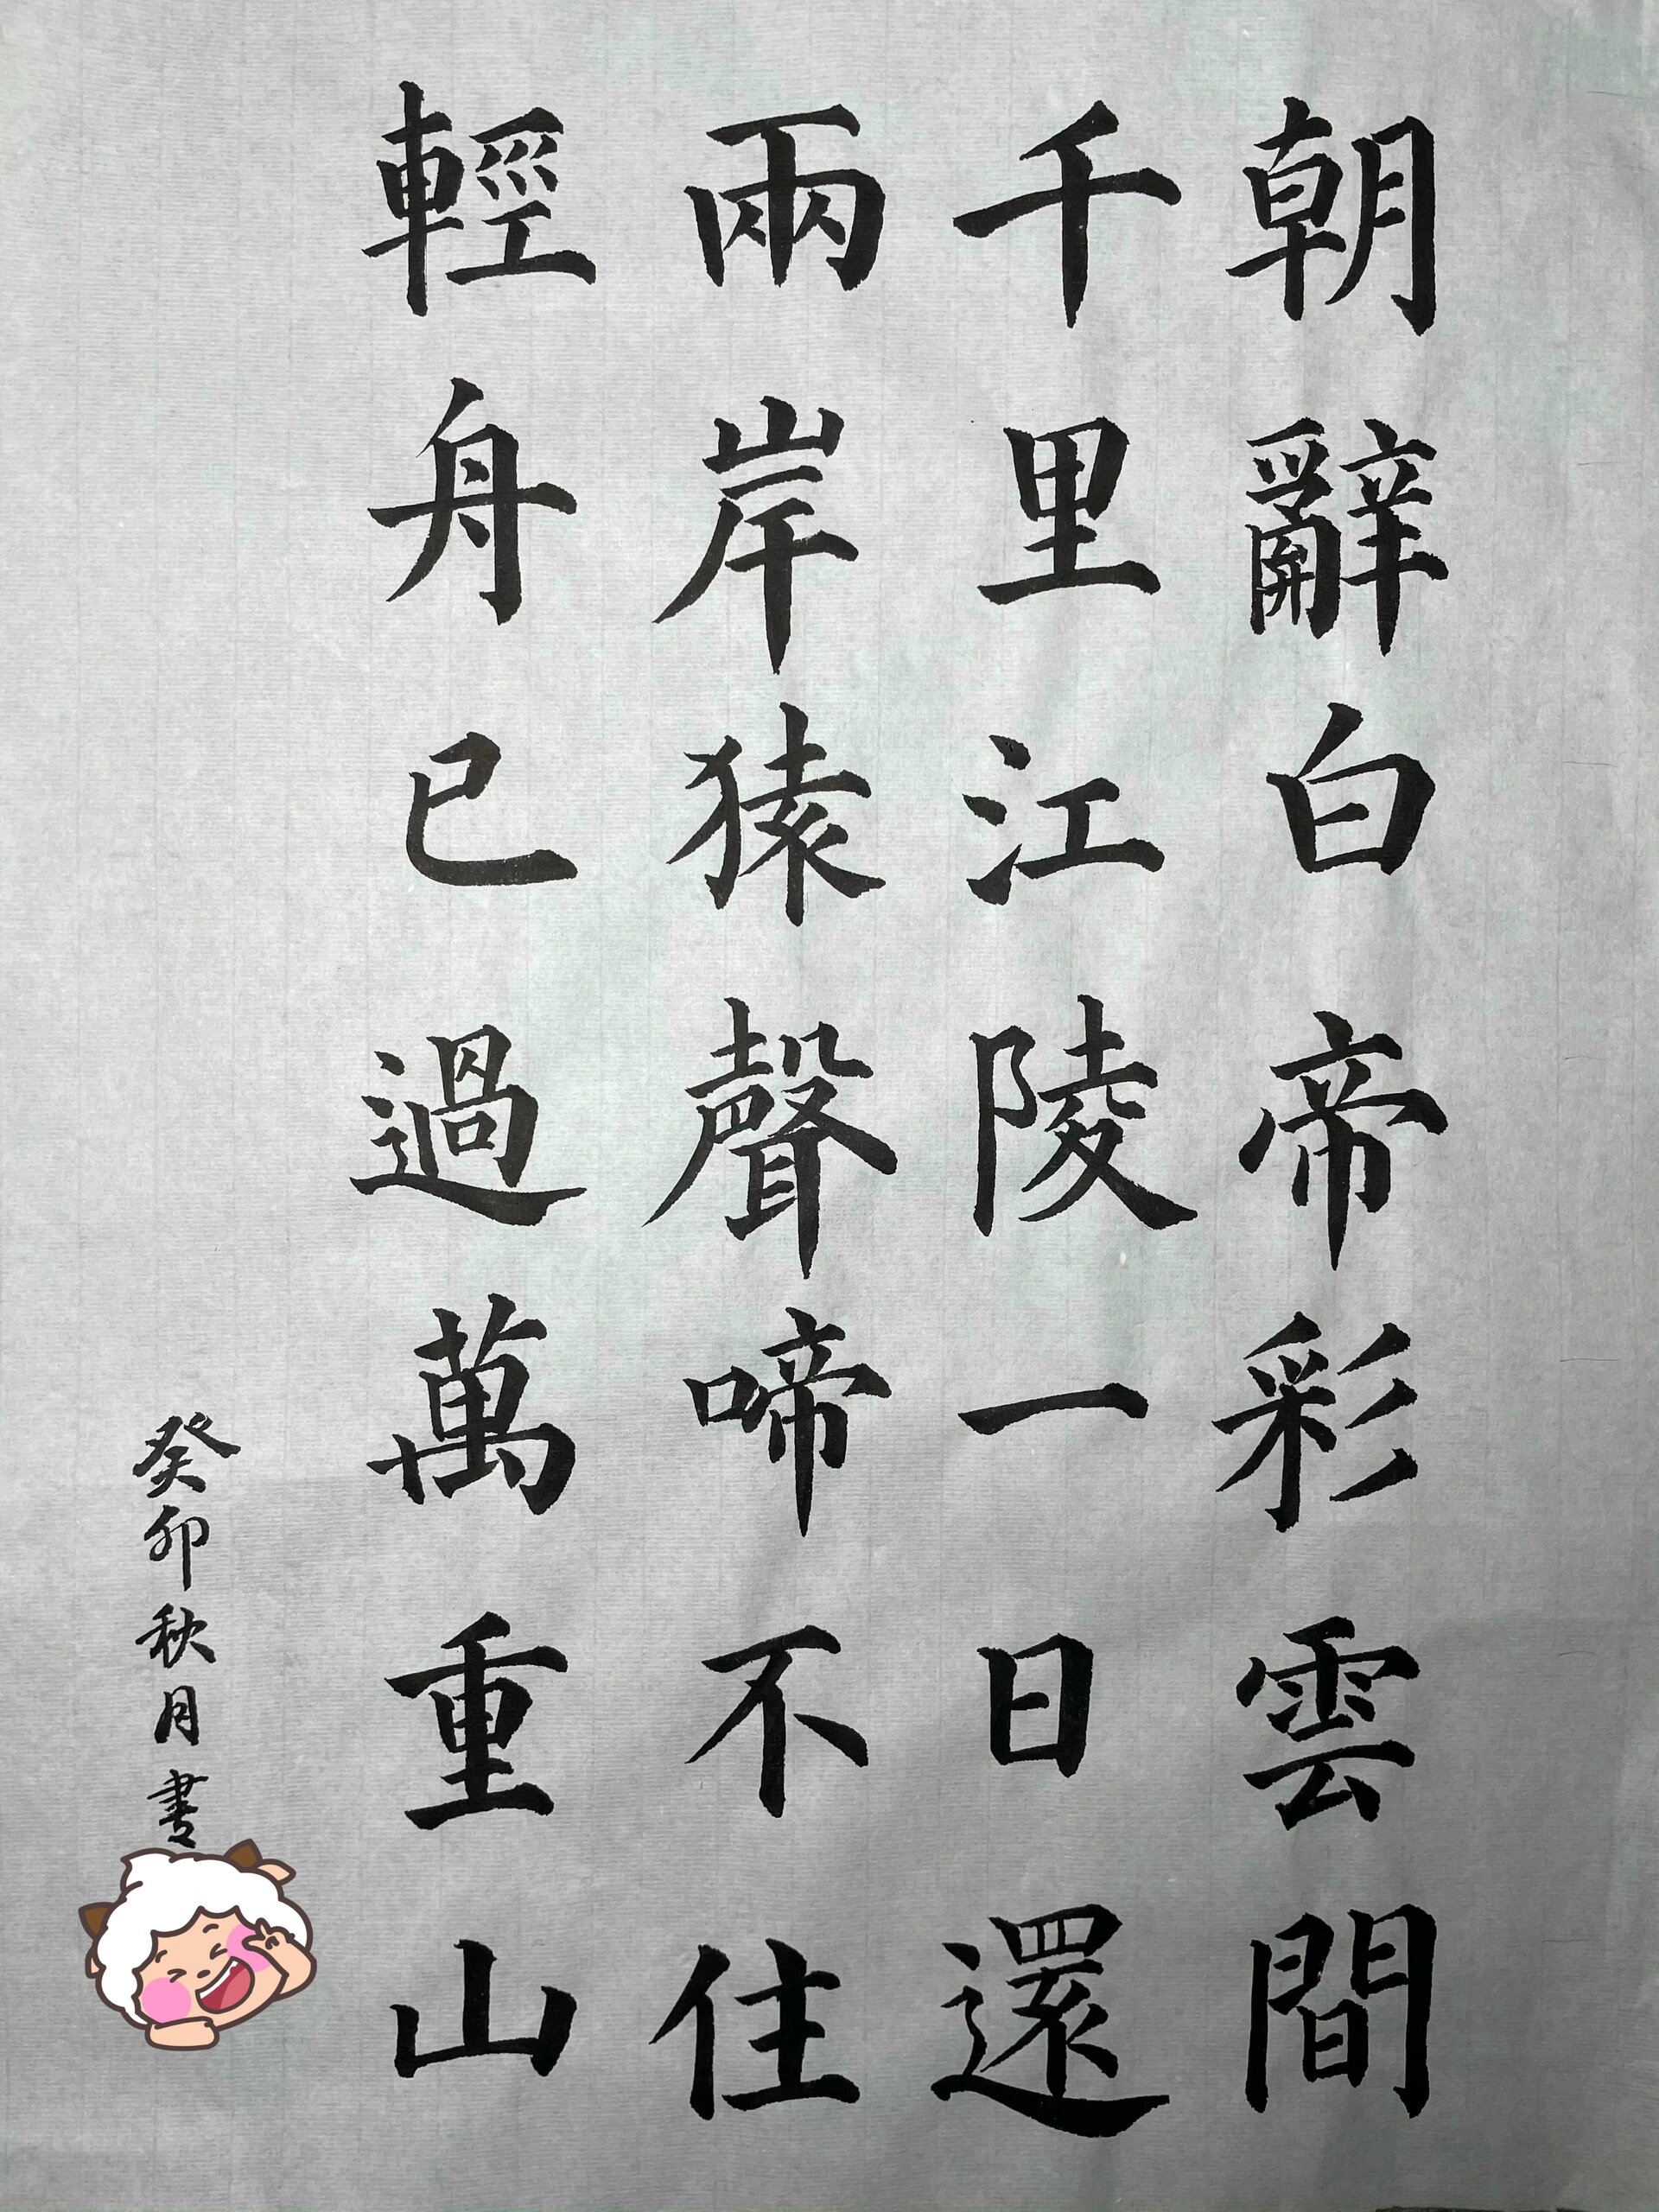 朝辭白帝彩雲間
千里江陵一日還
兩岸猿聲啼不住
輕舟已過萬重山
癸卯秋月書